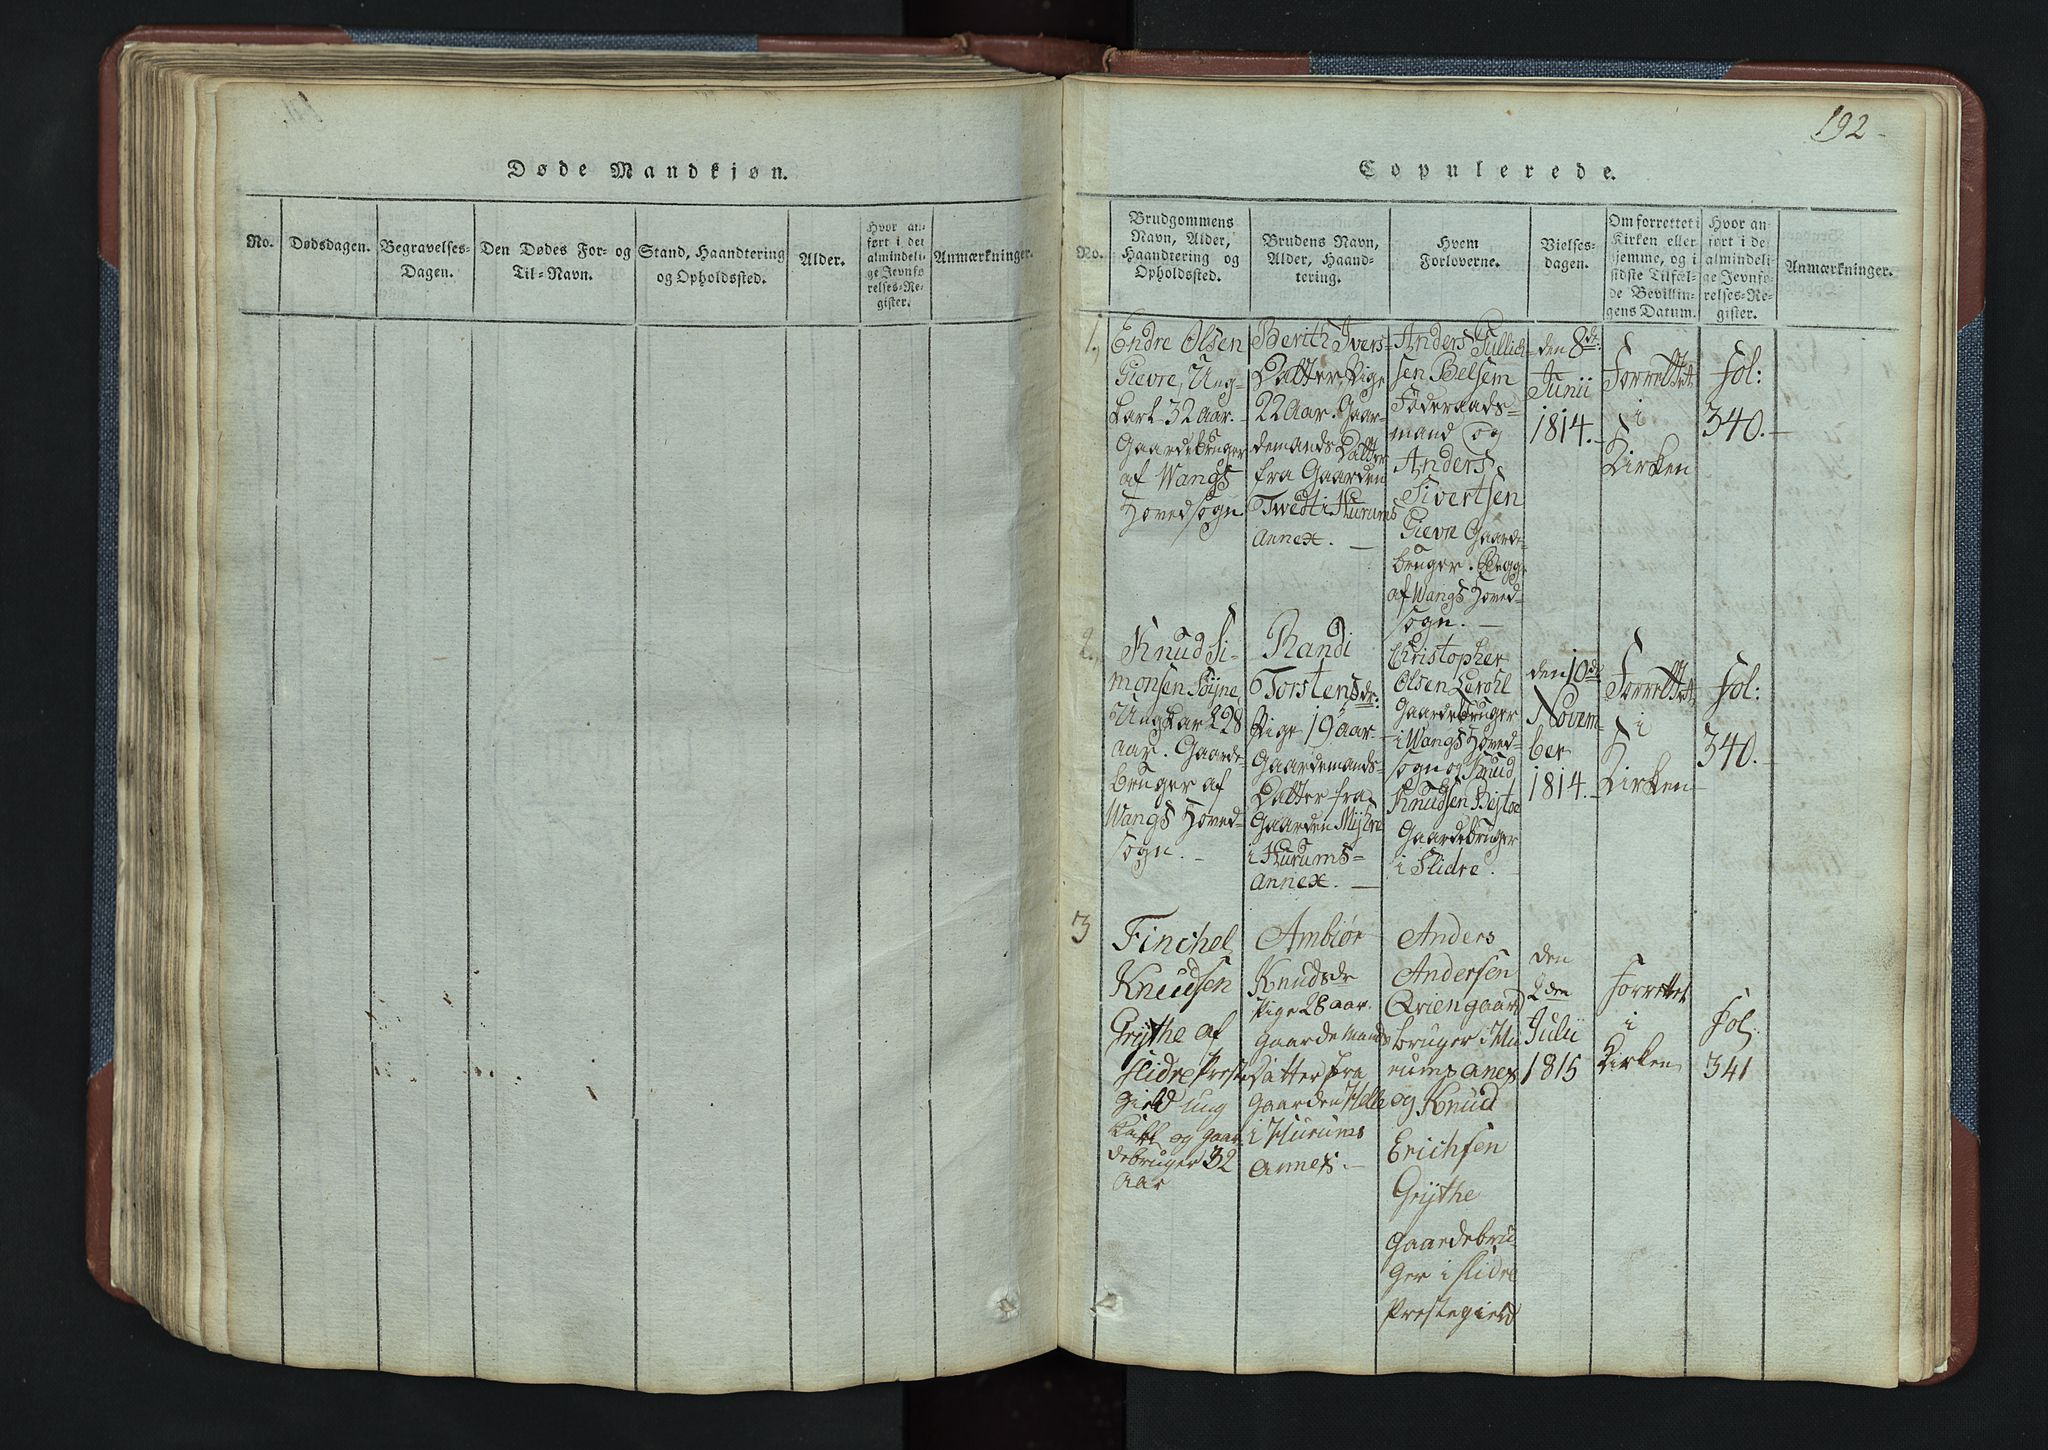 192
Døde Mandkjøn.
No.
Dødsdagen.
Begravelses-
Dagen.
Den Dødes For- og
Til-Navn.
Stand, Haandtering
og Opholdssted.
Alder.
Hvor an-
ført i det
almindeli-
ge Jevnfø-
relses-Re-
gister.
Anmærkninger.
Copulerede.
No.
Brudgommens
Navn, Alder,
Haandtering og
Opholdssted.
Brudens Navn,
Alder, Haand-
tering.
Hvem
Forloverne.
Vielses-
dagen.
Om forrettet i
Kirken eller
hjemme, og i
sidste Tilfæl-
de Bevillin-
gens Datum.
Hvor an-
ført i det
almindeli-
ge Jevnfø-
relses-Re-
gister.
Anmærkninger.
1.
Endre Olsen
Gievre, Ung-
karl 32 Aar.
Gaardebruger
af Wangs
Hovedsogn
Berith Ivers-
Datter, Pige
22 Aar. Gaar-
demands Datter
fra Gaarden
Twedt i Hurums
Annex. —
Anders Gullich-
sen Belsem
Föderaads-
mand og
Anders
Sivertsen
Gievre Gaarde-
bruger. Begge
af Wangs Hoved-
sogn. —
den 8de
Junii
1814. -
Forrettet
i
Kirken
Fol:
340. -
2.
Knud Si-
monsen
Ungkarl 28
aar. Gaarde-
bruger af
Wangs Hoved-
sogn. -
Randi
Torstensdr:
Pige 19 aar
Gaardemands-
Datter fra
Gaarden
i Hurums-
Annex. —
Christopher
Olsen
Gaardebruger
i Wangs Hoved-
sogn og Knud
Knudsen
Gaardebruger
i Slidre. -
den 10de
Novem-
ber
1814. -
Forrettet
i
Kirken
Fol:
340. -
3
Finchel
Knudsen
Grythe af
Slidre Preste
Gield ung
Karl og Gaar
debruger 32
Aar
Ambiør
Knudsdr
Pige 28 aar.
Gaardemands
Datter fra
Gaarden Helle
i Hurums
Annex. -
Anders
Andersen
Qviengaard
bruger i Hu
rums anex
og Knud
Erichsen
Grythe
Gaardebru
Ger i Slidre
Prestegield
den
2den
Julii
1815
Forrettet
i
Kirken
Fol.
341